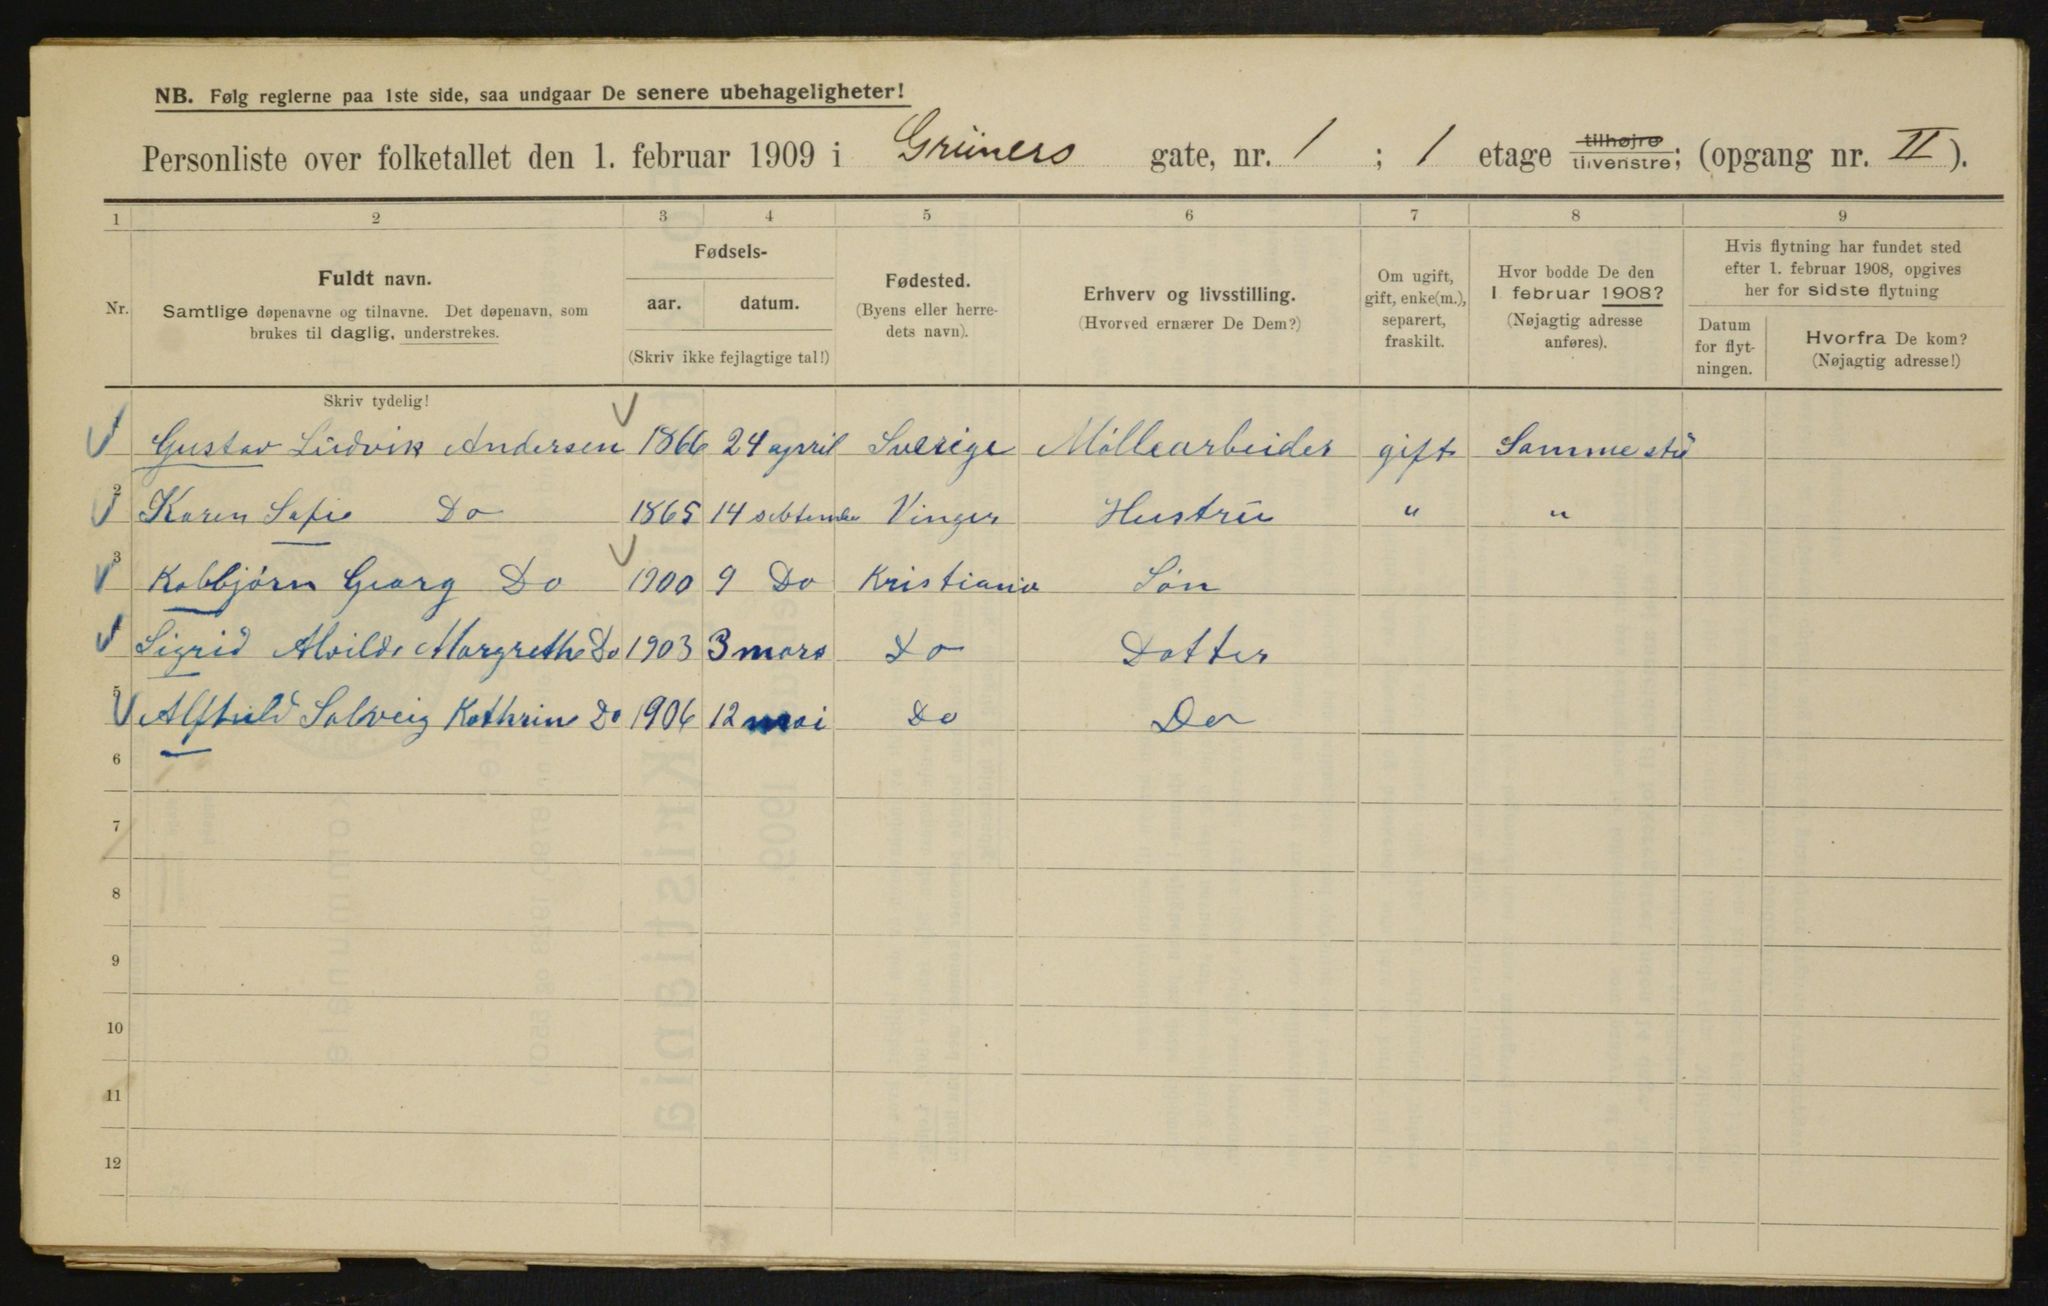 NB. Følg reglerne paa 1ste side, saa undgaar De senere ubehageligheter!
Personliste over folketallet den 1. februar 1909 i Grüners gate, nr. 1 ; 1 etage tilhøjre tilvenstre; (opgang nr. II).
1 2 3 4 5 6 7 8 9
Nr.
Fuldt navn.
Samtlige døpenavne og tilnavne. Det døpenavn, som
brukes til daglig, understrekes.
Fødsels-
aar. datum.
(Skriv ikke fejlagtige tal!)
Fødested.
(Byens eller herre-
dets navn).
Erhverv og livsstilling.
(Hvorved ernærer De Dem?)
Om ugift,
gift, enke(m.),
separert,
fraskilt.
Hvor bodde De den
1 februar 1908?
(Nøjagtig adresse
anføres).
Hvis flytning har fundet sted
efter 1. februar 1908, opgives
her for sidste flytning
Datum
for flyt-
ningen.
Hvorfra De kom?
(Nøjagtig adresse!)
Skriv tydelig!
Gustav Ludvik Andersen 1866 24 april Sverige Møllearbeider gift Samme std
2 Karen Sofie Do 1865 14 sebtember Vinger Hustru " "
3 Kolbbjørn Georg Do 1900 9 Do Kristiania Søn
Sigrid Alvilde Margrethe Do 1903 3 mars Do Datter
5 Alfhild Solveig Kathrine Do 1906 12 mai Do Do
6
7
8
9
10
11
12